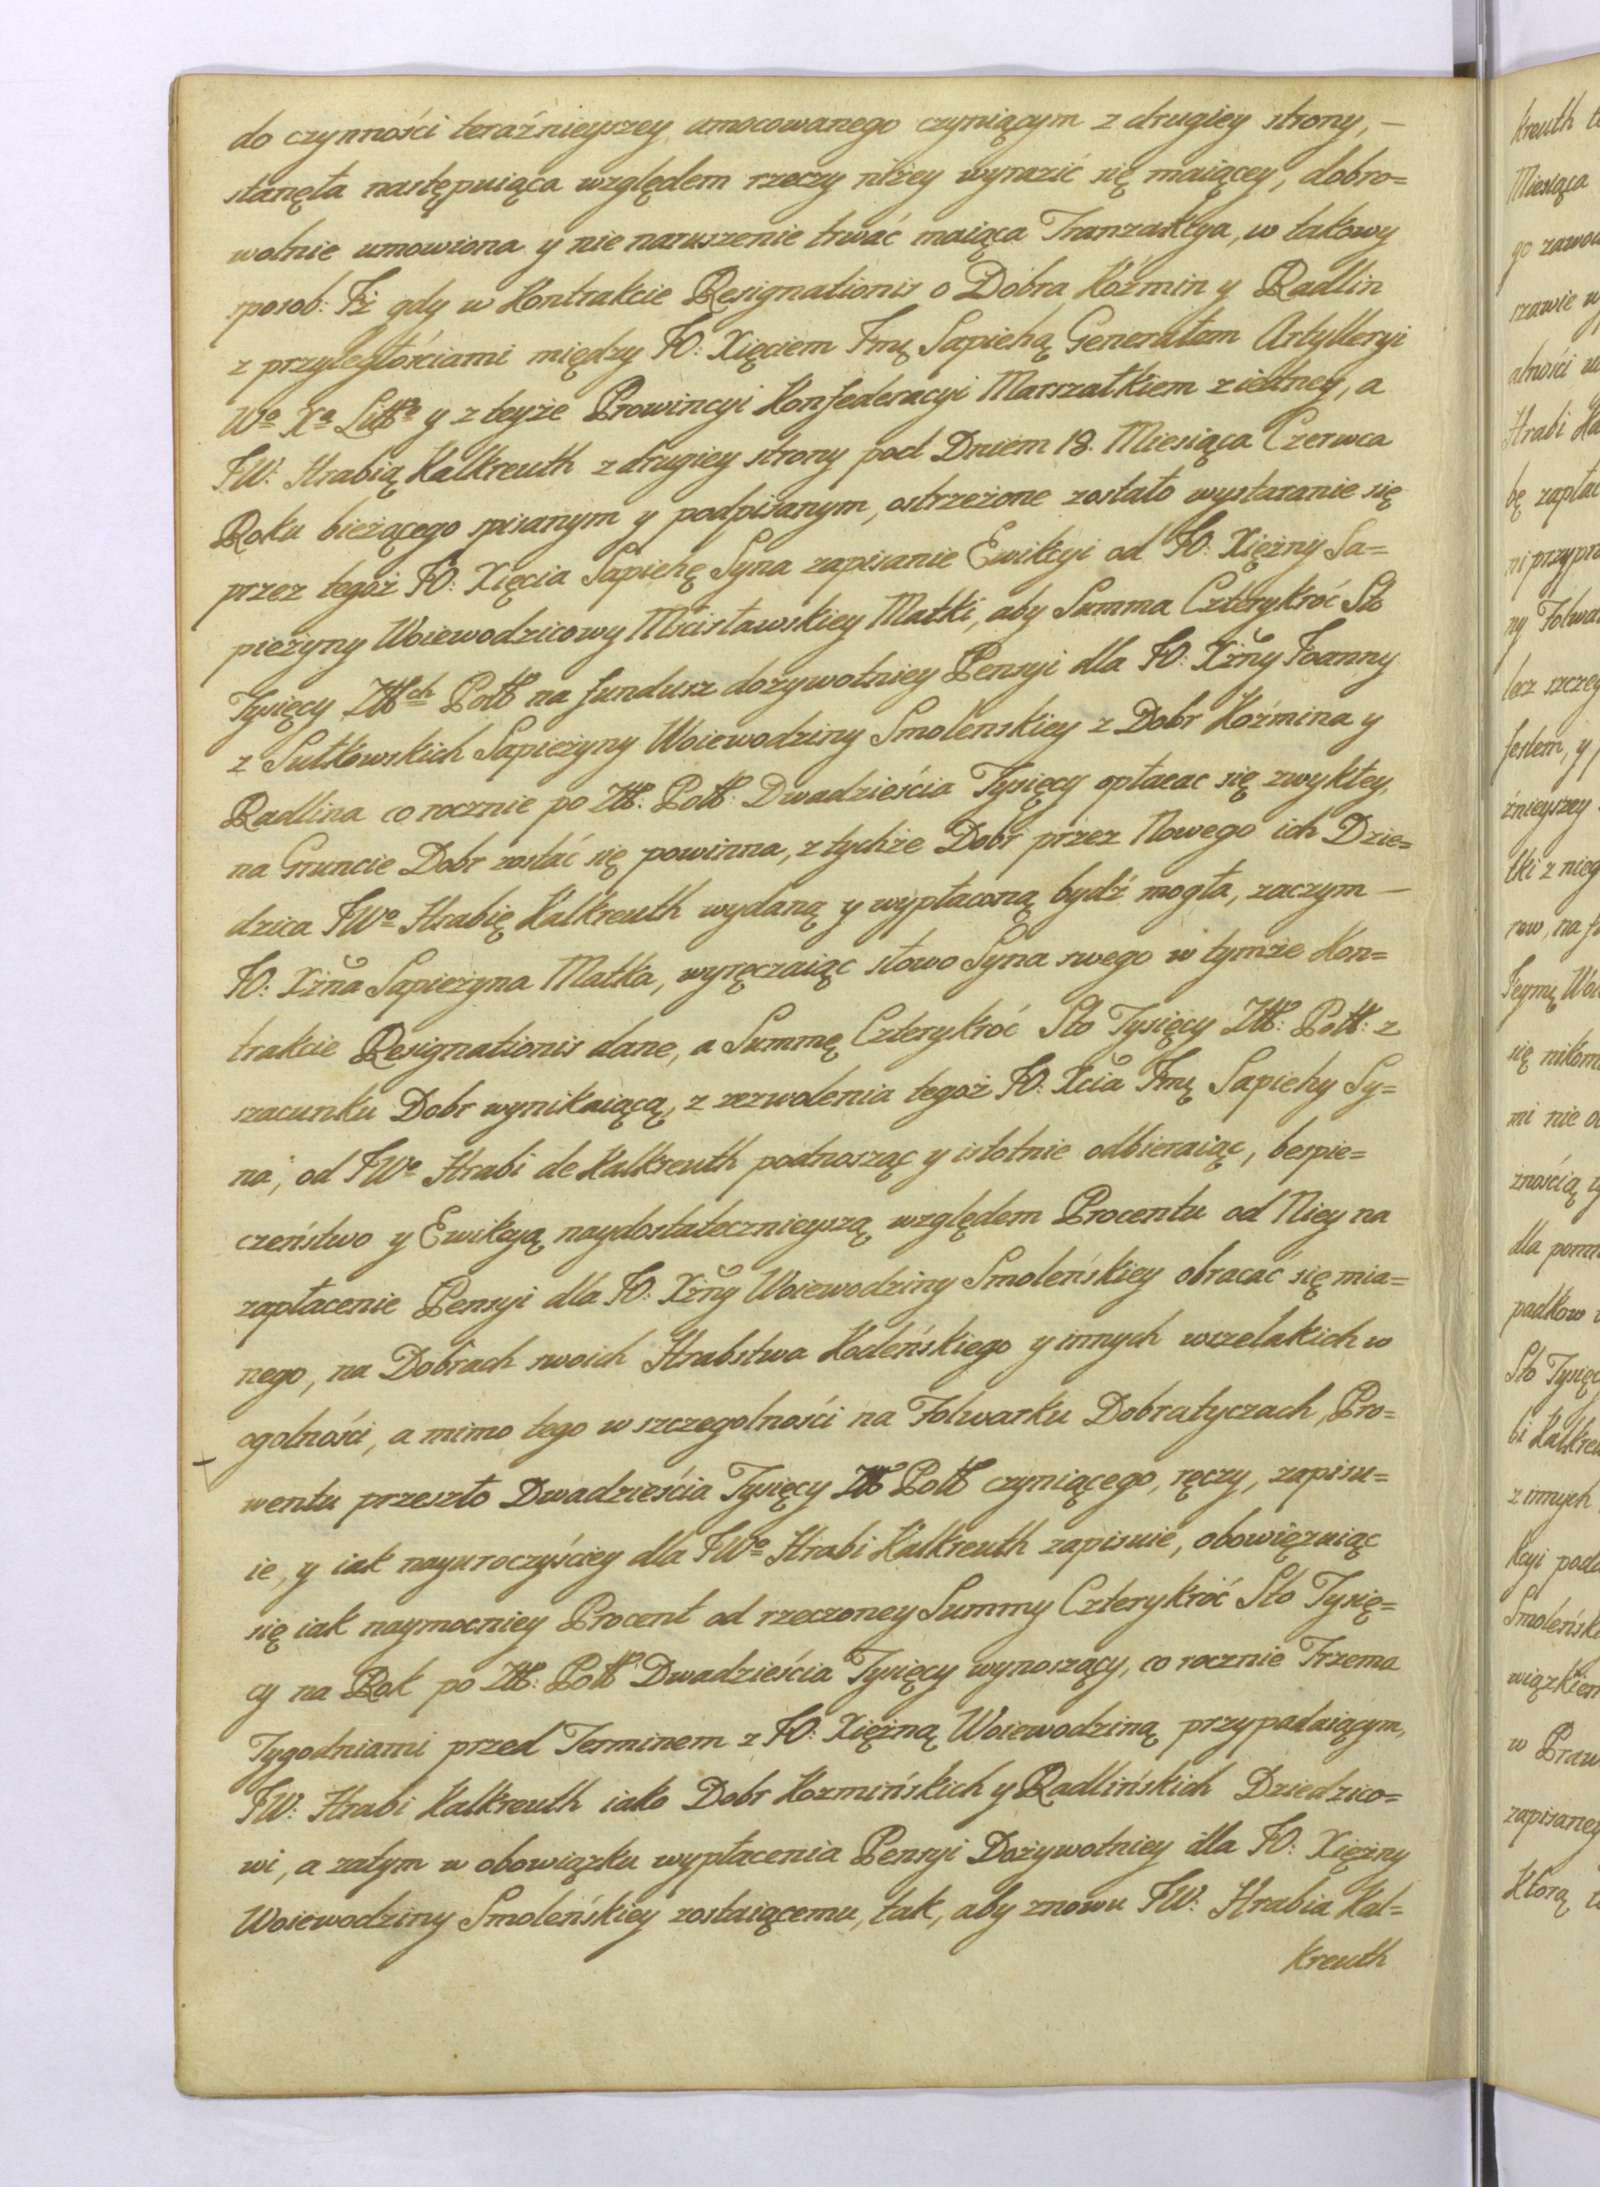 do czynności teraźnieyszey umocowanego czyniącym z drugiey strony, —
stanęła następuiąca względem rzeczy niżey wyrazić się maiącey, dobro=
wolnie umowiona y nie naruszenie trwać maiąca Tranzakcya, w takowy
sposob: Iż gdy w Kontrakcie Resignationis o Dobra Koźmin y Radlin
z przyległościami między JO: Xięciem Jmę Sapiehą Generałem Artylleryi
Wo Xa Littgo y z teyże Prowincyi Konfederacyi Marszałkiem z iedney, a
JW: Hrabią Kalkreuth z drugiey strony pod Dniem 18. Miesiąca Czerwca
Roku bieżącego spisanym y podpisanym, ostrzeżone zostało wystaranie się
przez tegoż JO: Xięcia Sapiehę Syna zapisanie Ewikcyi od JO: Xiężny Sa=
pieżyny Woiewodzicowy Mścisławskiey Matki, aby Summa Czterykroć Sto
Tysięcy Złłch Poll na fundusz dożywotniey Pensyi dla JO: Xżny Joanny
z Sułkowskich Sapieżyny Woiewodziny Smolenskiey z Dobr Koźmina y
Radlina co rocznie po Złł: Poll: Dwadzieścia Tysięcy opłacac się zwykłey,
na Gruncie Dobr zostać się powinna, z tychże Dobr przez Nowego ich Dzie=
dzica JWo Hrabię Kalkreuth wydaną y wypłaconą bydź mogła, zaczym —
JO: Xżna Sapieżyna Matka, wyręczaiąc słowo Syna swego w tymże Kon=
trakcie Resignationis dane, a Summę Czterykroć Sto Tysięcy Złł: Poll: z
szacunku Dobr wynikaiącą, z zezwolenia tegoż JO: Xcia Jmę Sapiehy Sy=
na, od JWo Hrabi de Kalkreuth podnosząc y istotnie odbieraiąc, bespie=
czeństwo y Ewikcyą naydostatecznieyszą względem Procentu od Niey na
zapłacenie Pensyi dla JO: Xżny Woiewodziny Smoleńskiey obracać się mia=
nego, na Dobrach swoich Hrabstwa Kodeńskiego y innych wszelakich w
ogolności, a mimo tego w szczegolności na Folwarku Dobratyczach, Pro=
wentu przeszło Dwadzieścia Tysięcy Złł Poll czyniącego, ręczy, zapisu=
ie, y iak nayuroczyściey dla JWo Hrabi Kalkreuth zapisuie, obowięzuiąc
się iak naymocniey Procent od rzeczoney Summy Czterykroć Sto Tysię=
cy na Rok po Złł: Poll Dwadzieścia Tysięcy wynoszący, co rocznie Trzema
Tygodniami przed Terminem z JO: Xiężną Woiewodziną przypadaiącym,
JW: Hrabi Kalkreuth iako Dobr Kozmińskich y Radlińskich Dziedzico=
wi, a zatym w obowiązku wypłacenia Pensyi Dożywotniey dla JO: Xiężny
Woiewodziny Smoleńskiey zostaiącemu, tak, aby znowu JW: Hrabia Kal=
kreuth